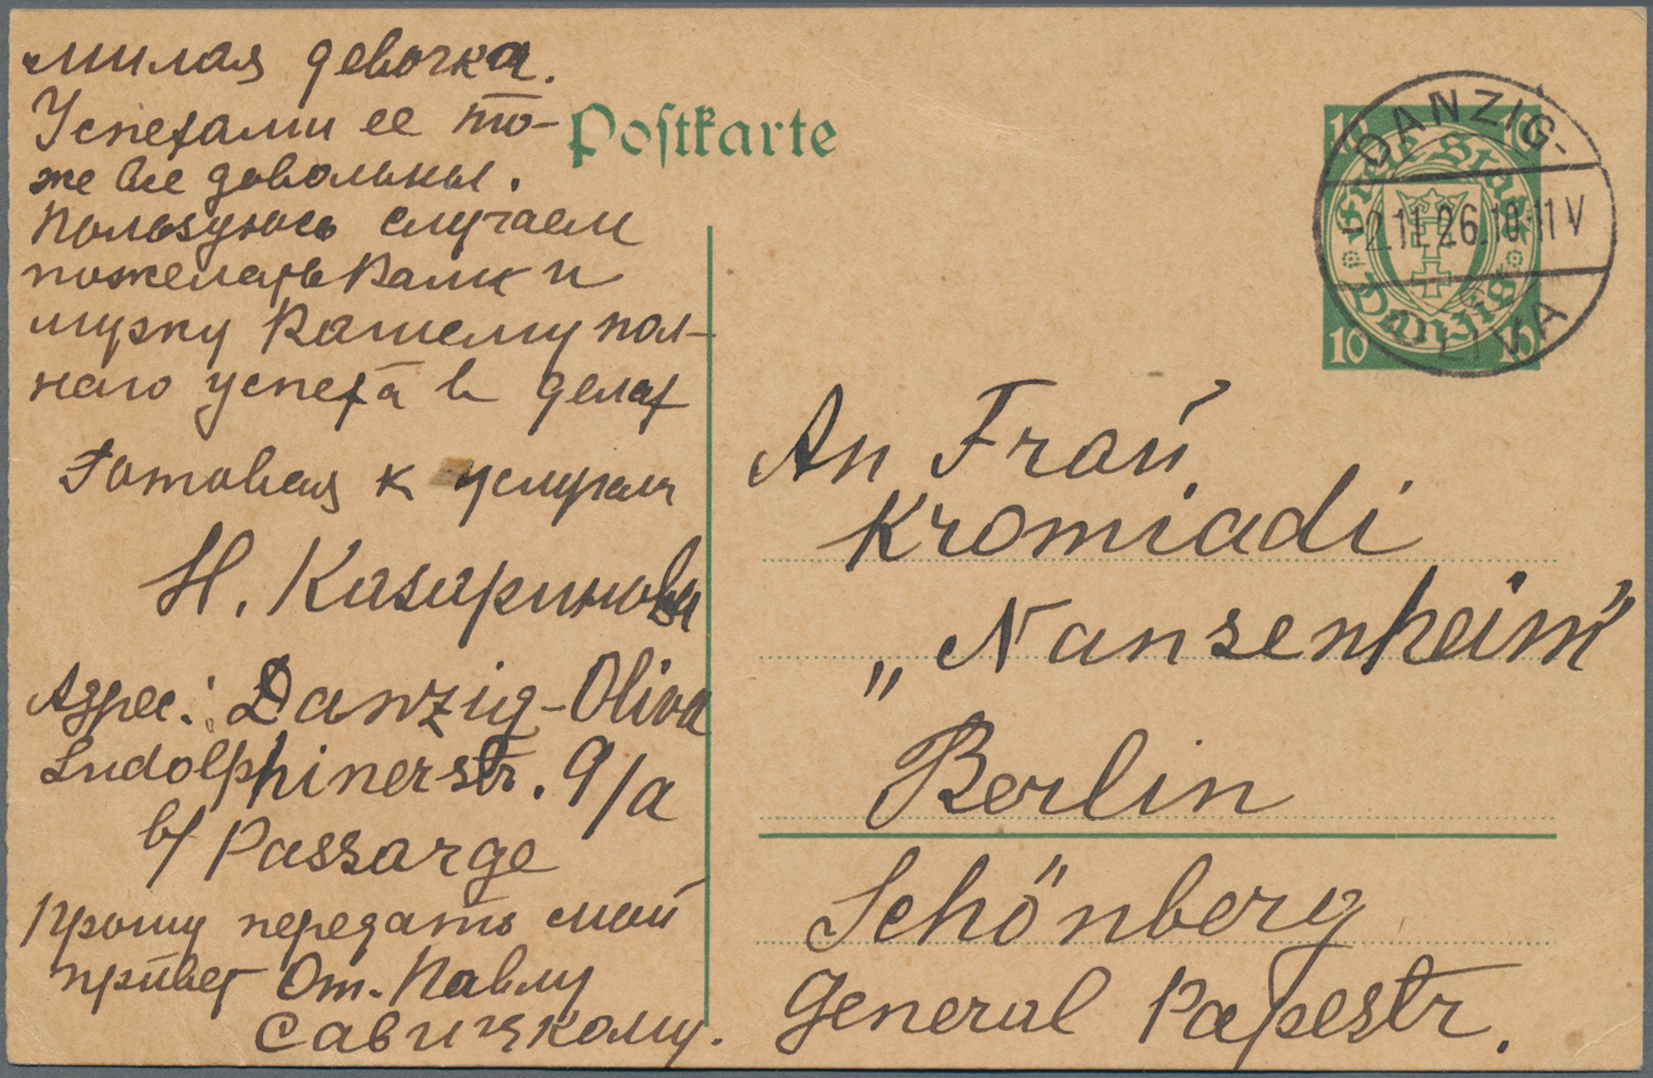 милая девочка.
Успехами ее то-
же все довольны.
Пользуюсь случаем
пожелать Вам и
мужу Вашему пол-
ного успеха в делах
Готовая к услугам
Н. Казаринова
Адрес: Danzig-Oliva
Ludolphinerstr. 9/a
b/ Passarge
Прошу передать мой
привет От. Павлу
Савицкому.
Postkarte
DANZIG-
2.11.26.10-11V
OLIVA
Freie Stadt
Danzig
10 10
10 10
An Frau
Kromiadi
„Nansenheim"
Berlin
Schönberg
General Papestr.